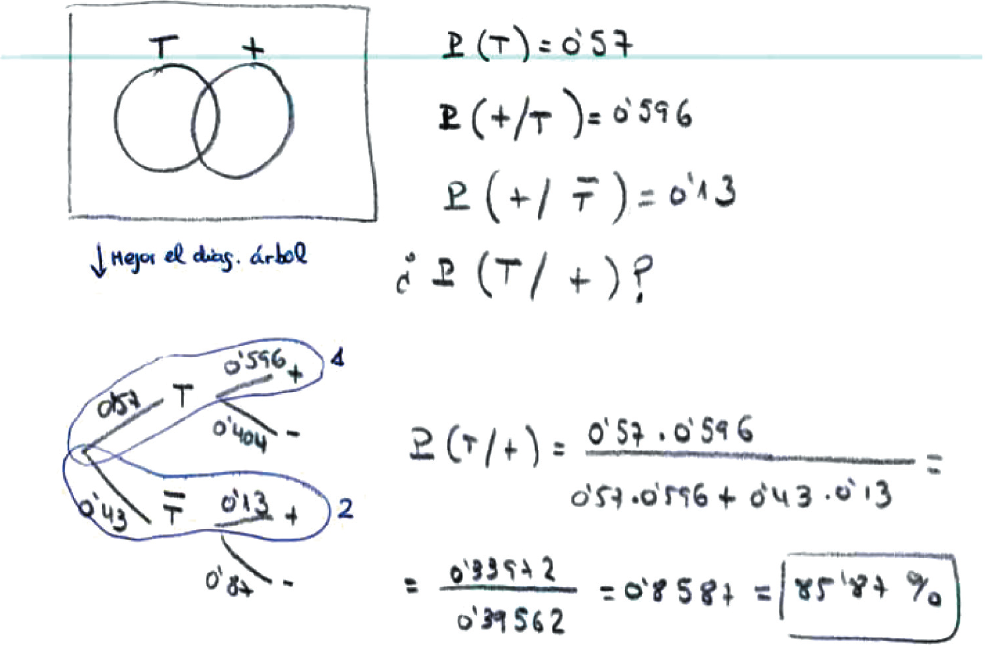 T +
P(T)=0'57
P(+/T)=0'596
P(+/T̅)=0'13
↓ Mejor el diag. árbol
¿P(T/+)?
0'57 T 0'596 + 1
0'404 -
0'43 T̅ 0'13 + 2
0'87 -
P(T/+) = 0'57.0'596
0'57.0'596+0'43.0'13 =
= 0'33972
0'39562 = 0'8587 = 85'87 %